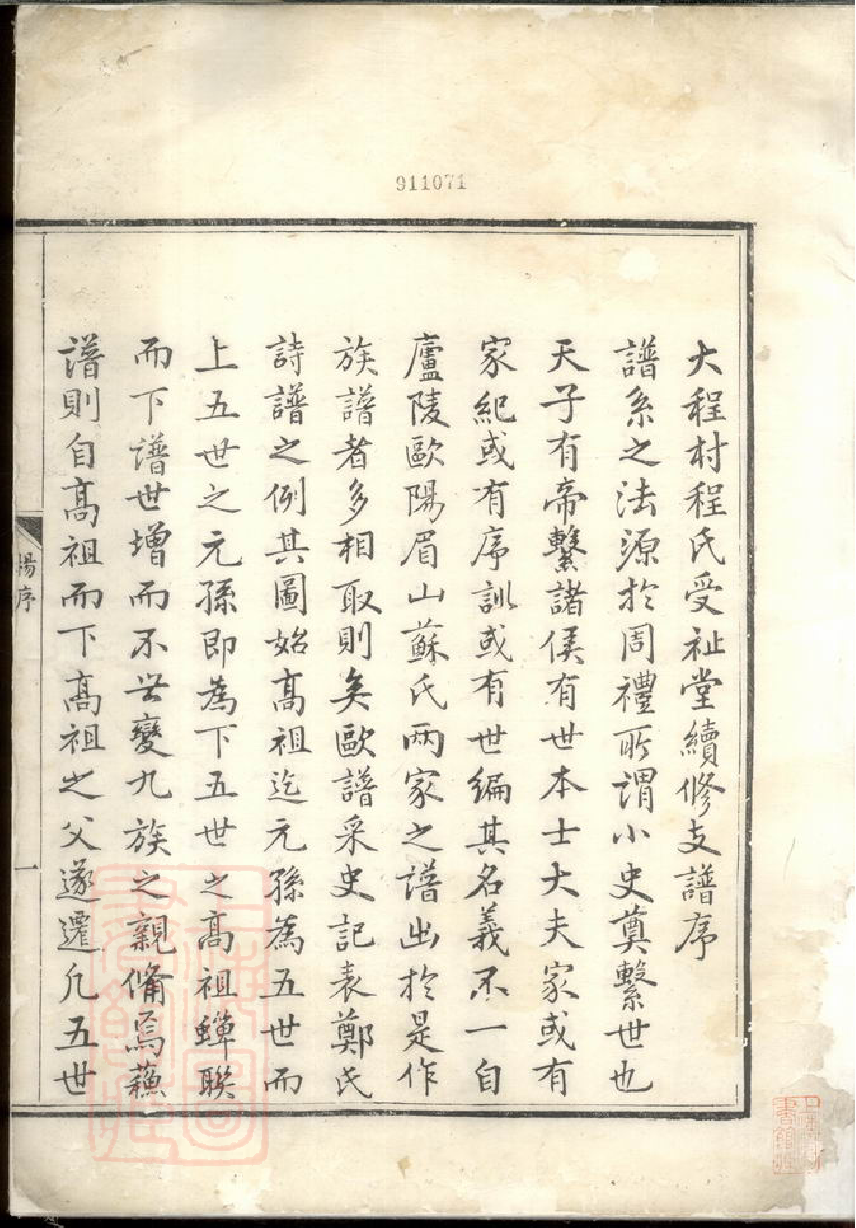 911071
大程村程氏受祉堂續修支譜序
譜系之法源於周禮所謂小史奠繫世也
天子有帝繫諸侯有世本士大夫家或有
家紀或有序訓或有世編其名義不一自
廬陵歐陽眉山蘇氏兩家之譜出於是作
族譜者多相取則矣歐譜采史記表鄭氏
詩譜之例其圖始高祖迄元孫為五世而
上五世之元孫即為下五世之高祖蟬聯
而下譜世增而不世變九族之親備焉蘇
譜則自高祖而下高祖之父遂遷凡五世
楊序
一